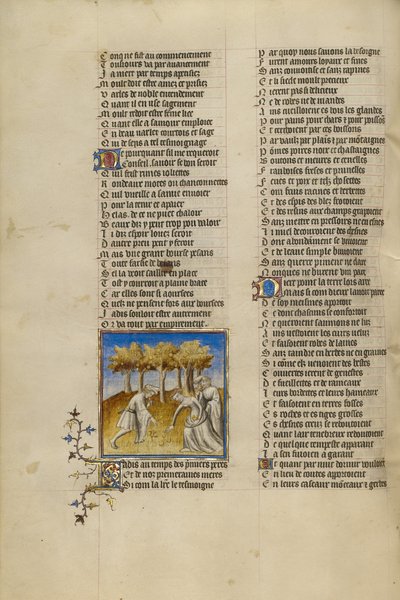 Conq ne fist au commencement
Tousiours va par auancement
Ja niert par temps apensez
Moult doit estre amez et prisiez
Varles de noble entendement
Quant il en use sagement
Moult redoit estre feme liee
Quant elle a samour emploiee
En beau varlet courtois et sage
Qui de sens a tel tesmoignage
Ne pourquant sil me requeroit
Conseil sauoir se bon seroit
Quil feist rimes iolietes
Rondeaux motes ou chanconnetes
Quil vueille a samie enuoier
Pour la tenir et apaier
Helas de ce ne puet chaloir
Beaux diz y peut trop pou valoir
Li diz espoir loez seroit
Dautre preu petit y feroit
Mais une grant bourse pesans
Toute farsie de besans
Se il la veoit saillir en place
Tost y courroit a plaine brace
Car elles sont si aoursees
Quelz ne pensent fors aux boursees
Jadis souloit estre autrement
Or va tout par empirement
Jadis au temps des premiers peres
Et de noz premeraines meres
Si com la lre le tesmoigne
Par quoy nous sauons la besoigne
Furent amours loyaux et fines
Sanz couuoitise et sanz rapines
Et li siecle moult precieux
Nierent pas si delicieux
Ne de robes ne de viandes
Ains cueilloient es bois les glandes
Pour pains pour chars et pour poissons
Et cerchoient par ces boissons
Par vaulx par plais et par montaignes
Pomes poires noix et chastaignes
Boutons et meures et cenelles
Framboises freses et prunelles
Feues et pois et telz chosettes
Com fruis racines et herbetes
Et des espis des blez frotoient
Et des resins aux champs grapoient
Sanz mettre en pressoirs ne en esnes
Li miel decouroient des chesnes
Dont abondament se viuoient
Et de leaue simple buuoient
Sanz querre piment ne clare
Nonques ne burent vin pare
Niert point la terre lors aree
Mais si com dieux lauoit paree
De soy mesmes apportoit
Ce dont chascuns se confortoit
Ne queroient saumons ne luz
Ains vestoient les cuirs veluz
Et faisoient robes de laines
Sanz taindre en herbes ne en graines
Si come elz venoient des bestes
Couuertes ierent de genestes
De fueilletes et de rameaux
Leurs bordetes et leurs hameaux
Et faisoient en terres fosses
Es roches et es tiges grosses
Es chesnes creux se reboutoient
Quant lair tenebreux redoutoient
De quelque tempeste apparant
La sen fuioient a garant
Et quant par nuit dormir vouloient
En lieu de coutes apportoient
En leurs caseaux monceaux et gerbes